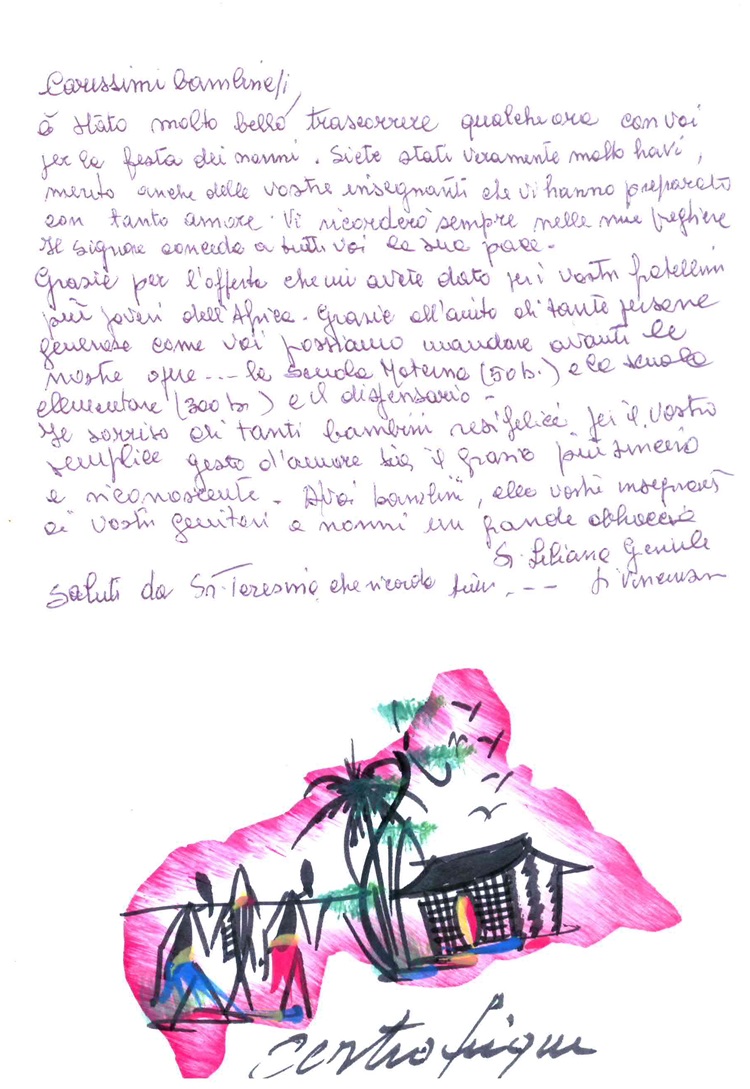 Carissimi bambine/i,
è stato molto bello trascorrere qualche ora con voi
per la festa dei nonni. Siete stati veramente molto bravi,
merito anche delle vostre insegnanti che vi hanno preparato
con tanto amore. Vi ricorderò sempre nelle mie preghiere
Il Signore conceda a tutti voi la sua pace.
Grazie per l'offerta che mi avete dato per i vostri fratellini
più poveri dell'Africa. Grazie all'aiuto di tante persone
generose come voi possiamo mandare avanti le
nostre opere... la Scuola Materna (50 b.) e la scuola
elementare (300 b.) e il dispensario.
Il sorriso di tanti bambini resi felici per il vostro
semplice gesto d'amore sia il grazie più sincero
e riconoscente. A voi bambini, alle vostre insegnanti
ai vostri genitori e nonni un grande abbraccio
Sr. Liliana
Saluti da Sr. Teresina che ricorda tutti...
centrafrique